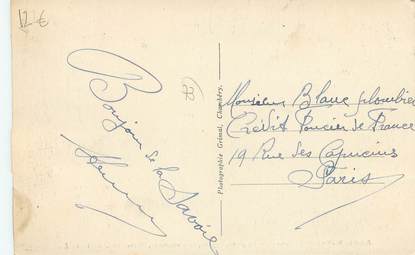 12 €
Bonjour
de la Savoie
Photographie Grimal, Chambéry.
Monsieur Blanc plombier
Crédit Foncier de France
19 Rue des Capucins
Paris